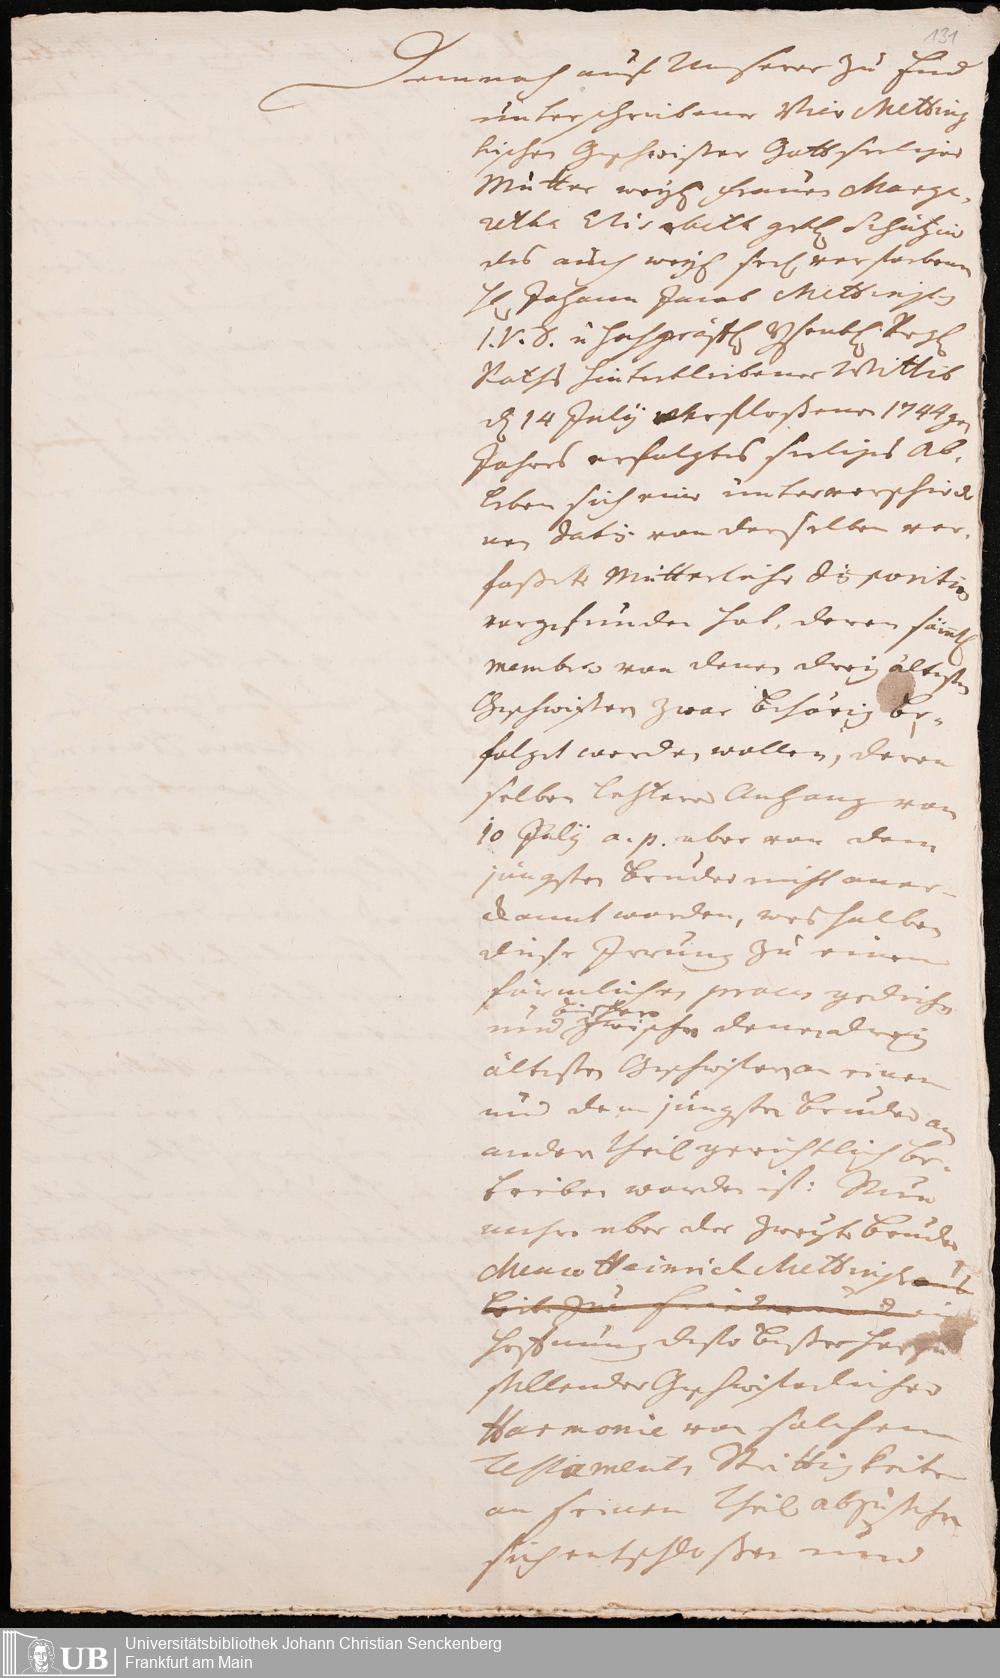 131
Demnach auf Unserer zu End
unterschriebener Vier Metting
lischen Geschwister Gottseeliger
Mutter weyl. Frauen Marga,
retha Elisabeth geb. Schützin
des auch weyl. seel. verstorbenen
H. Johann Jacob Mettingh
I.V.D. u hochgräfl. Ysenb.
Raths hinterbliebener Wittib
d. 14 July verflossenen 1744gen
Jahres erfolgtes seeliges Ab,
leben sich eine unter verschiede
nen datis von derselben ver,
faßete Mütterliche disposition
vorgefunden hat, deren sämtl.
membra von denen drey ältesten
Geschwistern zwar behörig be=
folget werden wollen, deren
selben letzterer Anhang von
10 July a. p. aber von dem
jüngsten Bruder nicht aner-
kannt worden, weshalben
diese Irrung zu einem
förmlichen process gediehen
und bishero zwischen denen drey
ältesten Geschwistern an einem
und dem jüngsten Bruder am
andern Theil gerichtlich be-
trieben worden ist: Nun
mehro aber der zweyte Bruder
Menco Heinrich Mettingh
Hoffnung desto besser herzu
stellender Geschwisterlicher
Harmonie von solchem
Testaments Streittigkeiten
an seinem Theil abzustehen
sich entschloßen und
UB Universitätsbibliothek Johann Christian Senckenberg
Frankfurt am Main